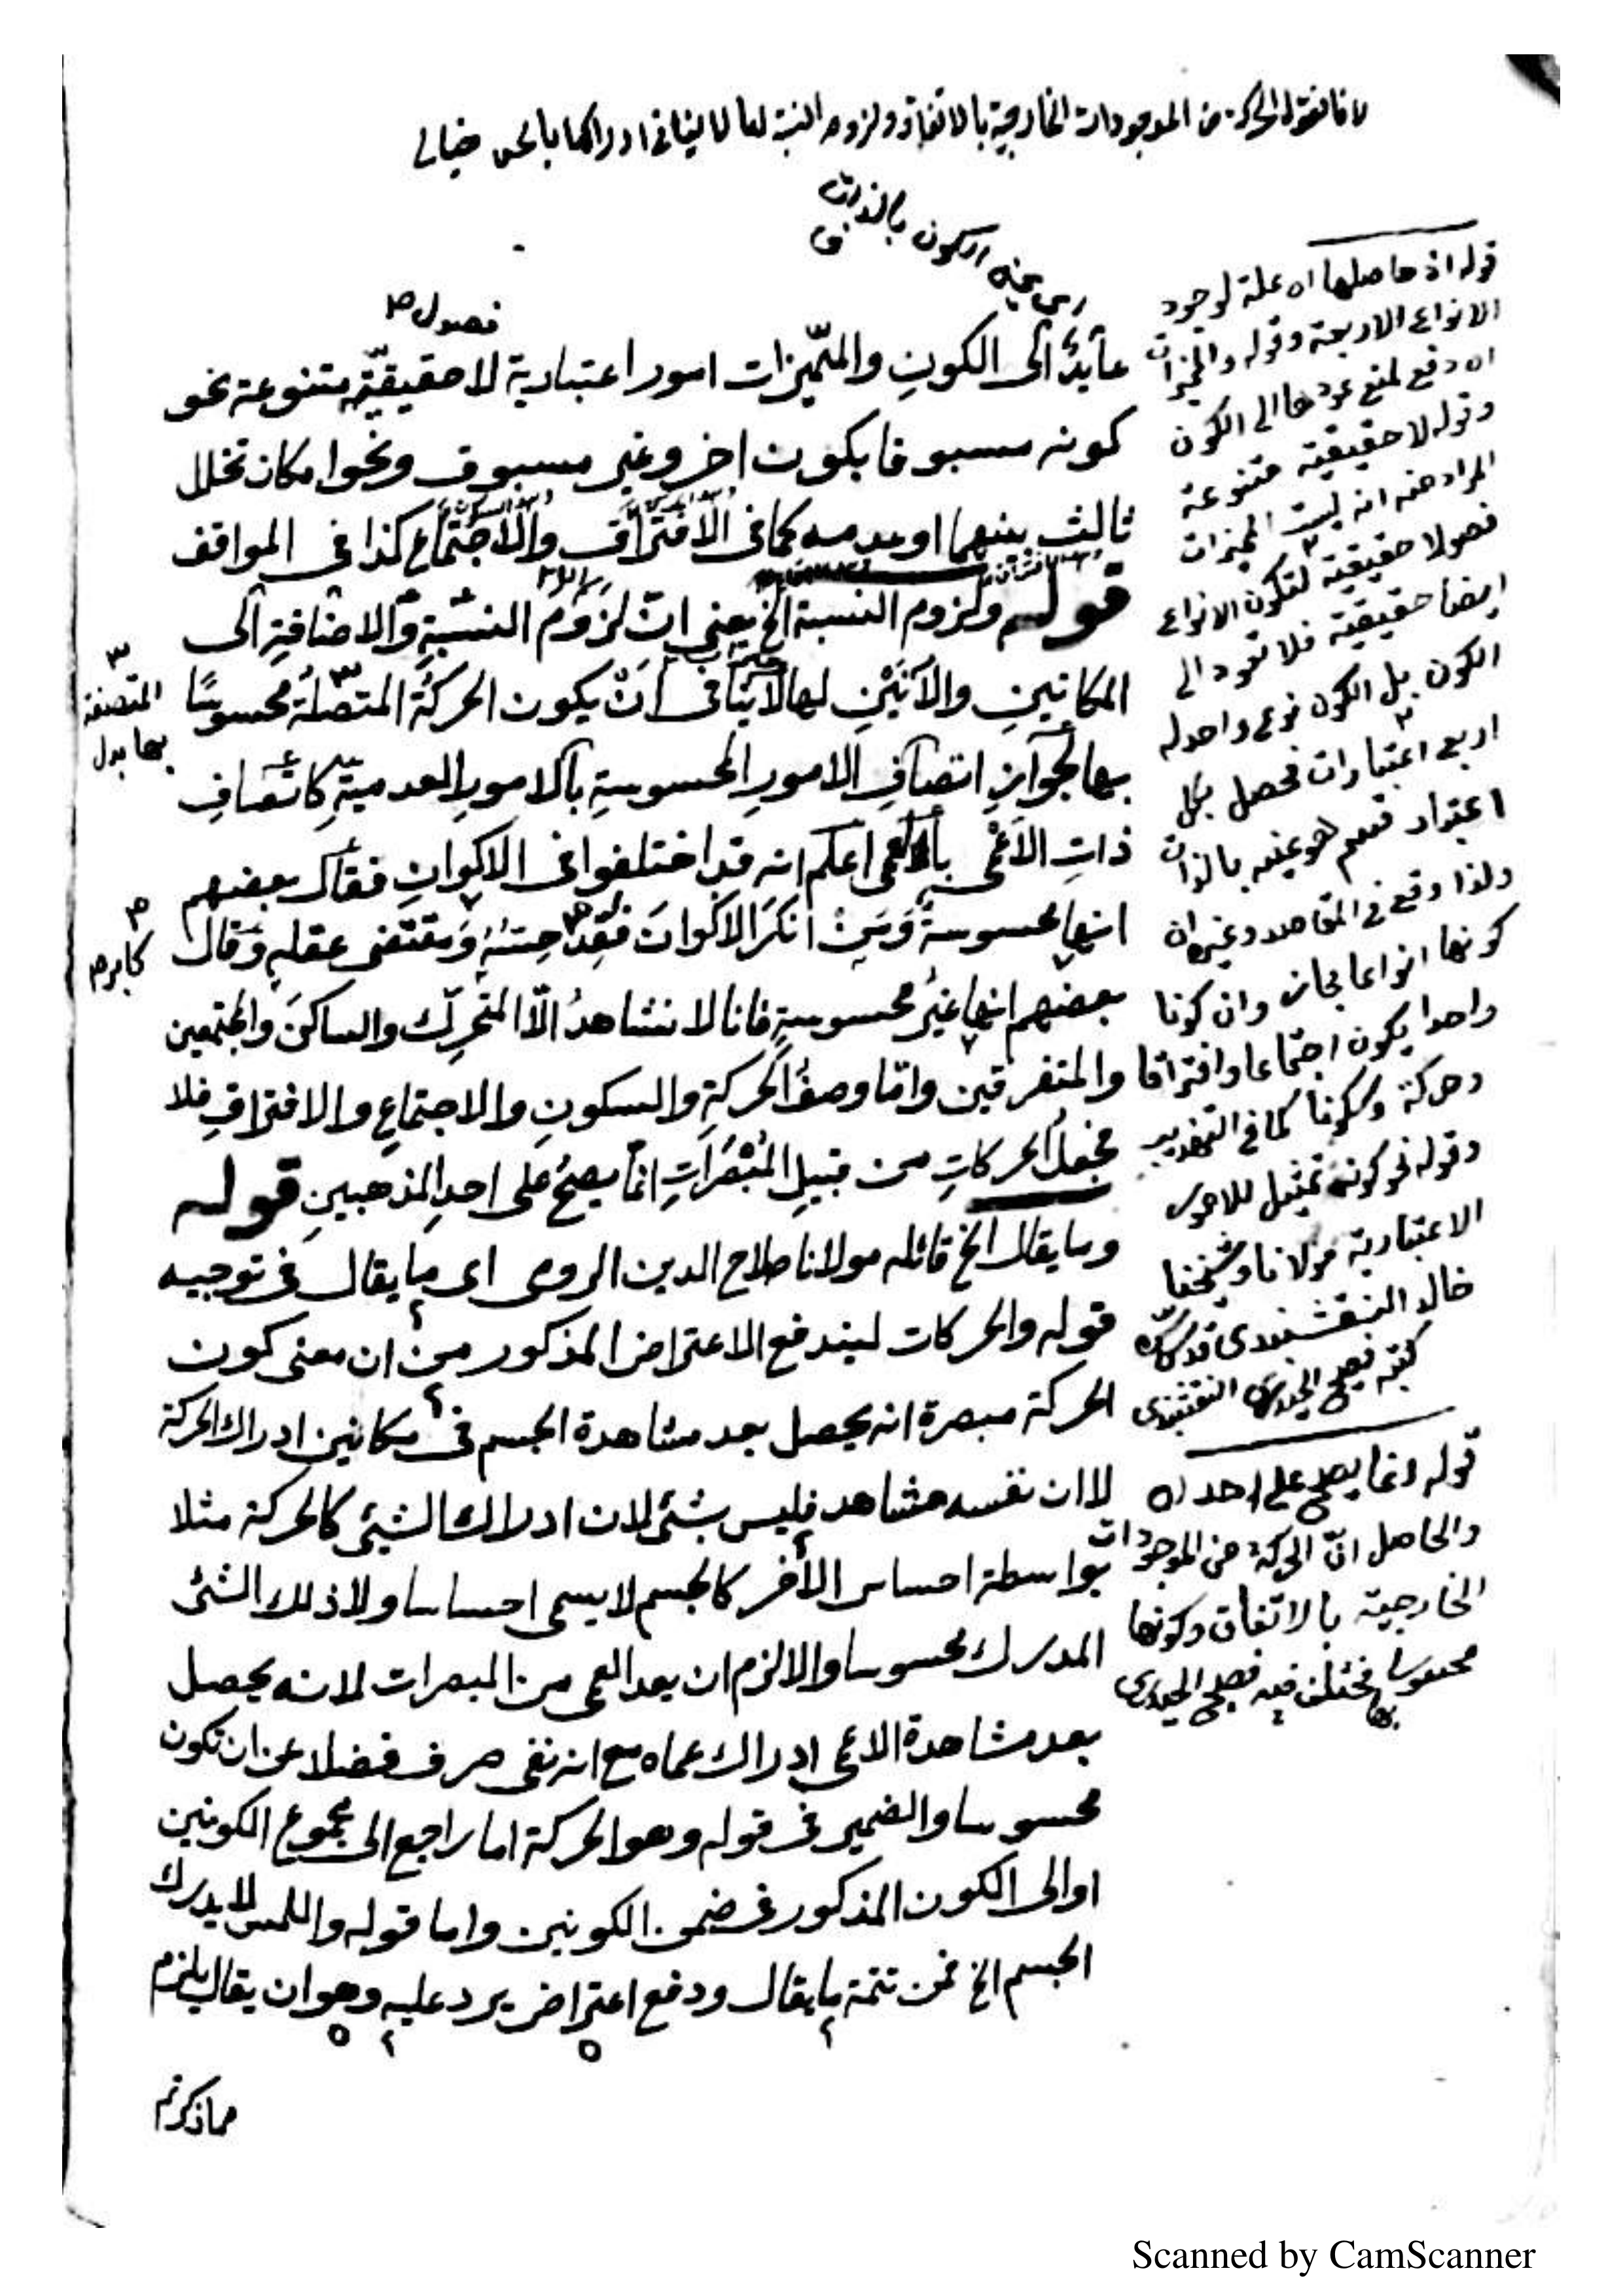 لانا نقول الحركة من الموجودات الخارجية بالاتفاق ولزوم النسبة لها لا ينافى ادراكها بالحس خيالى
عينه الكون بالذات
فصول صح
عايدة الى الكون والمتميزات امور اعتبارية لا حقيقية متنوعة نحو
كونه مسبوقا بكون اخر وغير مسبوق ونحو امكان تخلل
ثالث بينهما او عدمه كما فى الافتراق والاجتماع كذا فى المواقف
قوله ولزوم النسبة الخ يعنى ان لزوم النسبة والاضافة الى
المكانين والآنين لها لا ينافى ان يكون الحركة المتصلة محسوسا
بها لجواز اتصاف الامور المحسوسة بالامور العدمية كاتصاف
ذات الاعمى بالعمى اعلم انه قد اختلفوا فى الاكوان فقال بعضهم
انها محسوسة ومن انكر الاكوان فقد حسه ومقتضى عقله وقال
بعضهم انها غير محسوسة فانا لا نشاهد الا المتحرك والساكن والمجتمعين
والمتفرقين واما وصف الحركة والسكون والاجتماع والافتراق فلا
فجعل الحركات من قبيل المبصرات انما يصح على احد المذهبين قوله
وما يقال الخ قائله مولانا صلاح الدين الرومى اى ما يقال فى توجيه
قوله والحركات ليندفع الاعتراض المذكور من ان معنى كون
الحركة مبصرة انه يحصل بعد مشاهدة الجسم فى مكانين ادراك الحركة
لا ان نفسه مشاهد فليس بشئ لان ادراك الشيئ كالحركة مثلا
بواسطة احساس الآخر كالجسم لا يسمى احساسا ولا ذلك الشئ
المدرك محسوسا والا لزم ان يعد العمى من المبصرات لانه يحصل
بعد مشاهدة الاعمى ادراك عماه مع انه نفى صرف فضلا عن ان تكون
محسوسا والضمير فى قوله وهو الحركة اما راجع الى مجموع الكونين
او الى الكون المذكور فى ضمن الكونين واما قوله واللمس لا يدرك
الجسم الخ فمن تتمة ما يقال ودفع اعتراض يرد عليه وهو ان يقال يلزم
مما ذكرتم
المتصفة
بها بدل
كابر صح
قوله اذ حاصلها اه علة لوجود
الانواع الاربعة وقوله والمميزات
اه دفع لمنع عودها الى الكون
وقوله لا حقيقية متنوعة
المراد منه انه ليست المميزات
فصولا حقيقية لتكون الانواع
ايضا حقيقية فلا تعود الى
الكون بل الكون نوع واحد له
اربع اعتبارات فحصل بكل
اعتبار قسم هو عينه بالذات
ولذا وقع فى المقاصد وغيره ان
كونها انواعا مجاز وان كونا
واحدا يكون اجتماعا وافتراقا
وحركة وسكونا كما فى التجريد
وقوله نحو كونه تمثيل للامور
الاعتبارية مولانا وشيخنا
خالد النقشبندى قدس سره
كتبه فصيح الحيدرى النقشبندى
قوله انما يصح على احد اه
والحاصل ان الحركة من الموجودات
الخارجية بالاتفاق وكونها
محسوسا بها مختلف فيه فصيح الحيدرى
Scanned by CamScanner